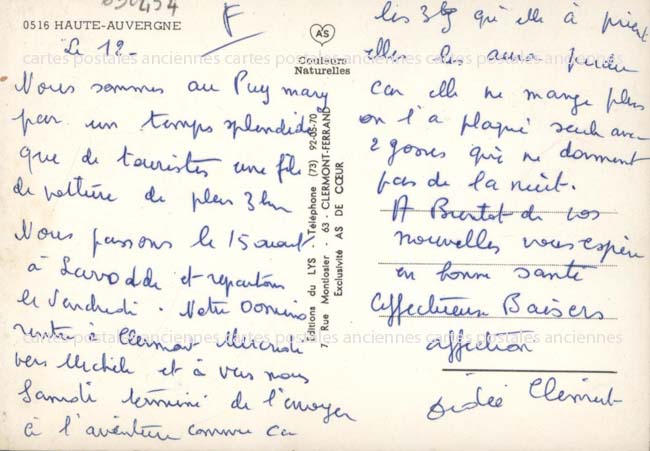 0516 HAUTE-AUVERGNE
Le 12-
Nous sommes au Puy mary
par un temps splendide
que de touristes une file
de voiture de plus 3 km
Nous passons le 15 aout
à Lavodde et repartons
le Vendredi. Notre Domino
rentre à Clermont Mercredi
vers Michele et à vers nous
Samedi terminé de l'envoyer
à l'aventure comme ca
AS
Couleurs
Naturelles
Editions du LYS - Téléphone (73) 92-05-70
7, Rue Montlosier - 63 - CLERMONT-FERRAND
Exclusivité AS DE CŒUR
les 3 kg qu'elle à prient
elle les aura perdu
car elle ne mange plus
on l'a plaqué seule avec
2 gosses qui ne dorment
pas de la nuit.
A Bientot de vos
nouvelles vous espère
en bonne santé
Affectueux Baisers
affection
Clément
cartes postales anciennes cartes postales anciennes cartes postales anciennes
cartes postales anciennes cartes postales anciennes cartes postales anciennes